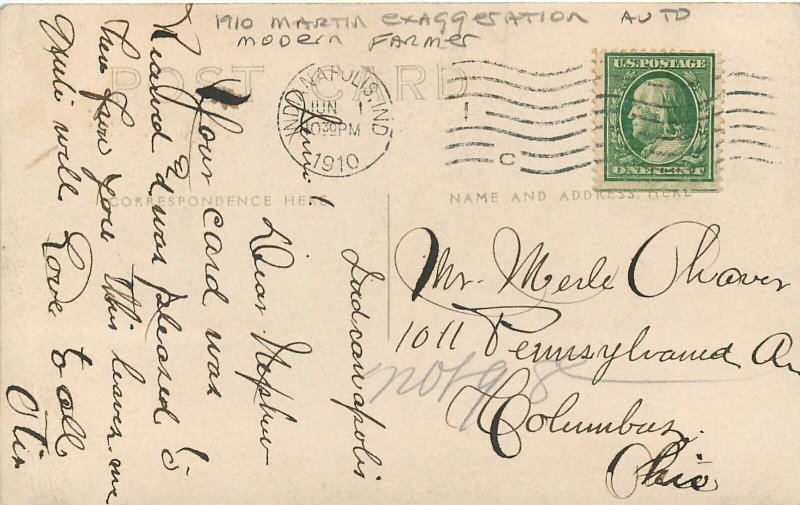 1910 MARTIN EXAGGERATION AUTO
MODERN FARMER
POST CARD
INDIANAPOLIS, IND
JUN 1
10 30 PM
1910
C
U.S. POSTAGE
ONE CENT
CORRESPONDENCE HERE
NAME AND ADDRESS HERE
Indianapolis
June 1
Dear Nephew
Your card was
received & was pleased to
hear from you this leaves me
well. Love to all
Otis
Mr. Merle Shaver
1011 Pennsylvania Av
not 98
Columbus,
Ohio